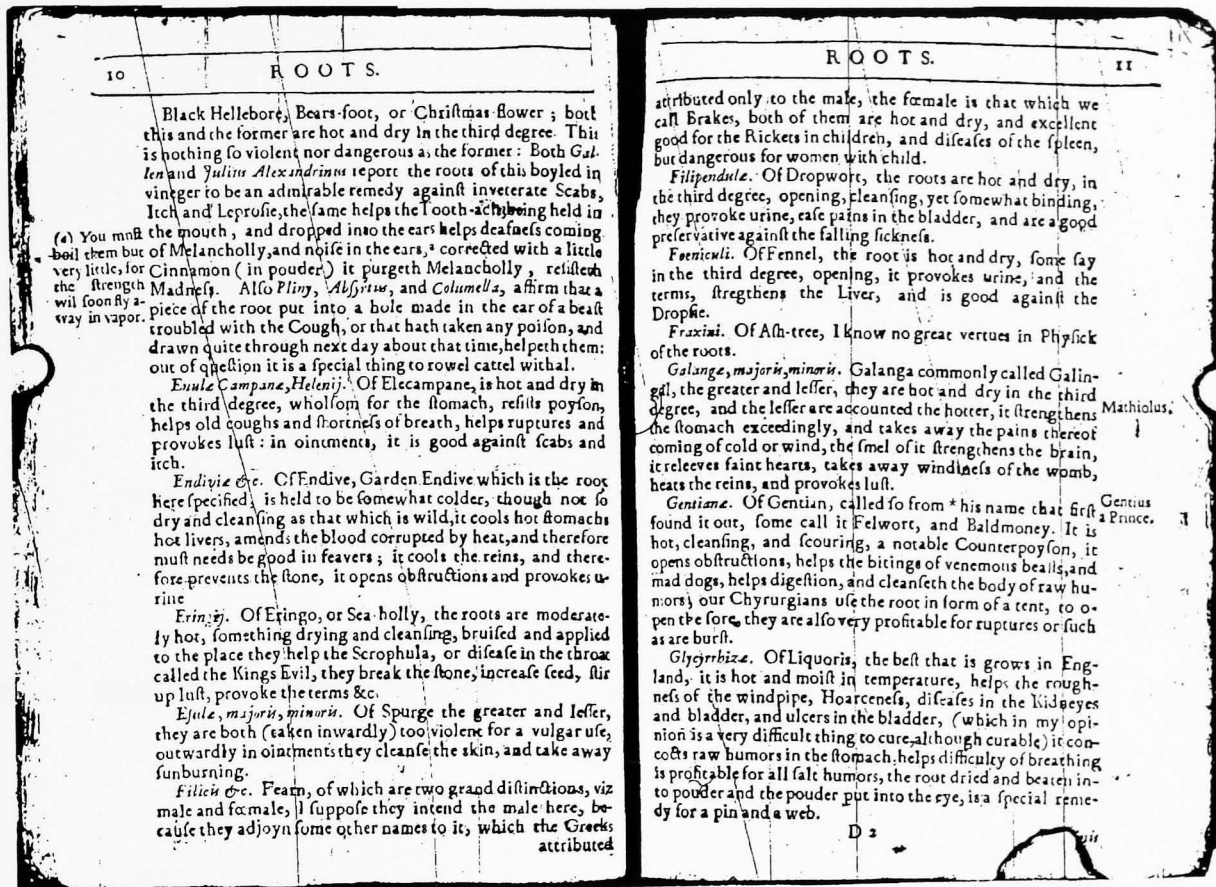 10 ROOTS.
Black Hellebore, Bears-foot, or Chriſtmas flower ; both
this and the former are hot and dry in the third degree. This
is nothing ſo violent nor dangerous as the former : Both Gal-
len and Julius Alexandrinus report the roots of this boyled in
vineger to be an admirable remedy againſt inveterate Scabs,
Itch and Leproſie, the ſame helps the Tooth-ach being held in
the mouth , and dropped into the ears helps deafneſs coming
of Melancholly, and noiſe in the ears, ª corrected with a little
Cinnamon ( in pouder ) it purgeth Melancholly , reſiſteth
Madneſs. Alſo Pliny, Abſyrtus, and Columella, affirm that a
piece of the root put into a hole made in the ear of a beaſt
troubled with the Cough, or that hath taken any poiſon, and
drawn quite through next day about that time, helpeth them:
out of queſtion it is a ſpecial thing to rowel cattel withal.
(a) You muſt
boil them but
very little, for
the ſtrength
wil ſoon fly a-
way in vapor.
Enulæ Campanæ, Helenij. Of Elecampane, is hot and dry in
the third degree, wholſom for the ſtomach, reſiſts poyſon,
helps old coughs and ſhortneſs of breath, helps ruptures and
provokes luſt : in ointments, it is good againſt ſcabs and
itch.
Endiviæ &c. Of Endive, Garden Endive which is the root
here ſpecified, is held to be ſomewhat colder, though not ſo
dry and cleanſing as that which is wild, it cools hot ſtomachs
hot livers, amends the blood corrupted by heat, and therefore
muſt needs be good in feavers ; it cools the reins, and there-
fore prevents the ſtone, it opens obſtructions and provokes u-
rine
Eringij. Of Eringo, or Sea-holly, the roots are moderate-
ly hot, ſomething drying and cleanſing, bruiſed and applied
to the place they help the Scrophula, or diſeaſe in the throat
called the Kings Evil, they break the ſtone, increaſe ſeed, ſtir
up luſt, provoke the terms &c.
Eſulæ, majoris, minoris. Of Spurge the greater and leſſer,
they are both (taken inwardly) too violent for a vulgar uſe,
outwardly in ointments they cleanſe the skin, and take away
ſunburning.
Filicis &c. Fearn, of which are two grand diſtinctions, viz
male and fœmale, I ſuppoſe they intend the male here, be-
cauſe they adjoyn ſome other names to it, which the Greeks
attributed
ROOTS. 11
attributed only to the male, the fœmale is that which we
call Brakes, both of them are hot and dry, and excellent
good for the Rickets in children, and diſeaſes of the ſpleen,
but dangerous for women with child.
Filipendulæ. Of Dropwort, the roots are hot and dry, in
the third degree, opening, cleanſing, yet ſomewhat binding,
they provoke urine, eaſe pains in the bladder, and are a good
preſervative againſt the falling ſickneſs.
Fœniculi. Of Fennel, the root is hot and dry, ſome ſay
in the third degree, opening, it provokes urine, and the
terms, ſtregthens the Liver, and is good againſt the
Dropſie.
Fraxini. Of Aſh-tree, I know no great vertues in Phyſick
of the roots.
Galangæ, majoris, minoris. Galanga commonly called Galin-
gal, the greater and leſſer, they are hot and dry in the third
degree, and the leſſer are accounted the hotter, it ſtrengthens
the ſtomach exceedingly, and takes away the pains thereof
coming of cold or wind, the ſmel of it ſtrengthens the brain,
it releeves faint hearts, takes away windineſs of the womb,
heats the reins, and provokes luſt.
Mathiolus.
Gentianæ. Of Gentian, called ſo from * his name that firſt
found it out, ſome call it Felwort, and Baldmoney. It is
hot, cleanſing, and ſcouring, a notable Counterpoyſon, it
opens obſtructions, helps the bitings of venemous beaſts, and
mad dogs, helps digeſtion, and cleanſeth the body of raw hu-
mors, our Chyrurgians uſe the root in form of a tent, to o-
pen the ſore, they are alſo very profitable for ruptures or ſuch
as are burſt.
Gentius
a Prince.
Glycyrrhizæ. Of Liquoris, the beſt that is grows in Eng-
land, it is hot and moiſt in temperature, helps the rough-
neſs of the windpipe, Hoarceneſs, diſeaſes in the Kidneyes
and bladder, and ulcers in the bladder, (which in my opi-
nion is a very difficult thing to cure, although curable) it con-
cocts raw humors in the ſtomach, helps difficulty of breathing
is profitable for all ſalt humors, the root dried and beaten in-
to pouder and the pouder put into the eye, is a ſpecial reme-
dy for a pin and a web.
D 2